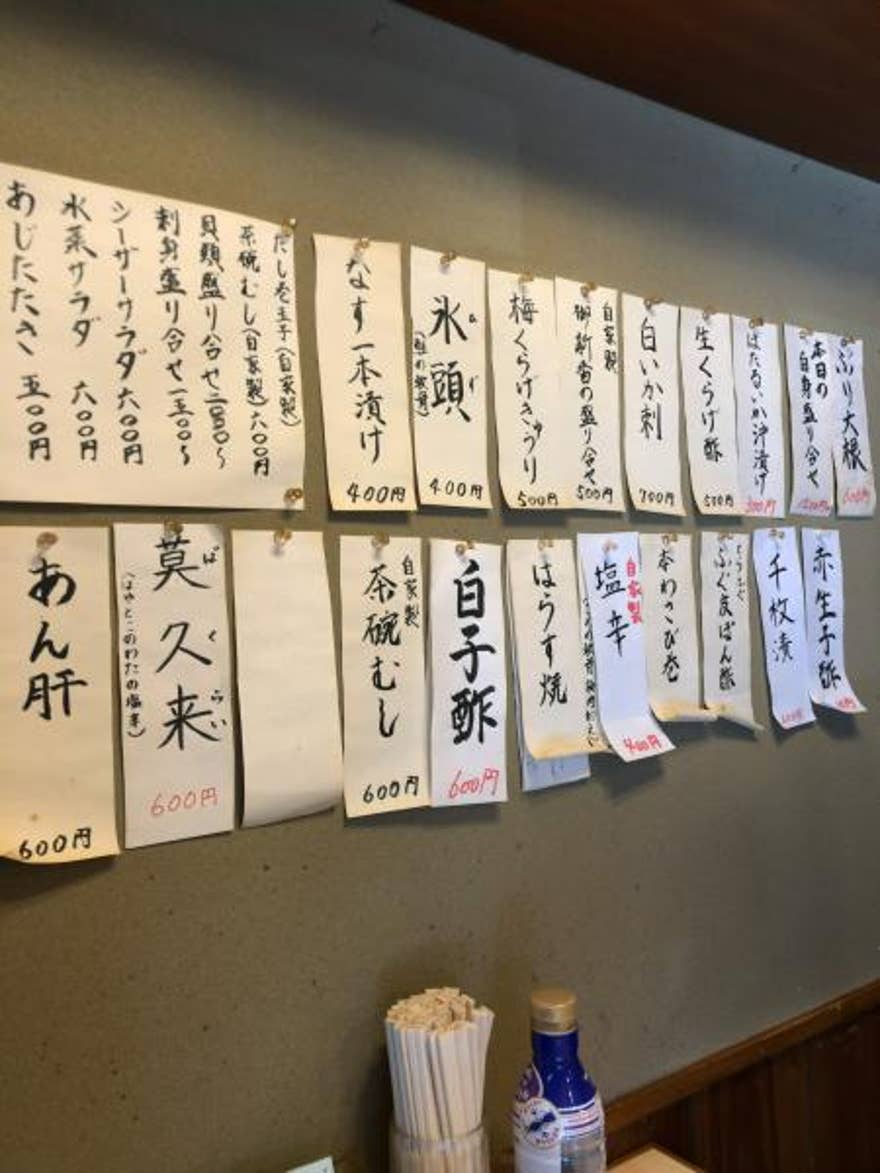 だし巻玉子(自家製)
茶碗むし(自家製)六〇〇円
貝類盛り合せ二五〇〇〜
刺身盛り合せ一五〇〇〜
シーザーサラダ 六〇〇円
水菜サラダ 六〇〇円
あじたたき 五〇〇円
ぶり大根
600円
本日の
白身盛り合せ
ほたるいか沖漬け
生くらげ酢
500円
白いか刺
700円
自家製
御新香の盛り合せ
500円
梅くらげきゅうり
500円
氷頭
400円
なす一本漬け
400円
赤生子酢
千枚漬
ふぐまばん酢
本わさび巻
自家製
塩辛
400円
はらす焼
白子酢
600円
自家製
茶碗むし
600円
莫久来
ばくらい
(ほやとこのわたの塩辛)
600円
あん肝
600円